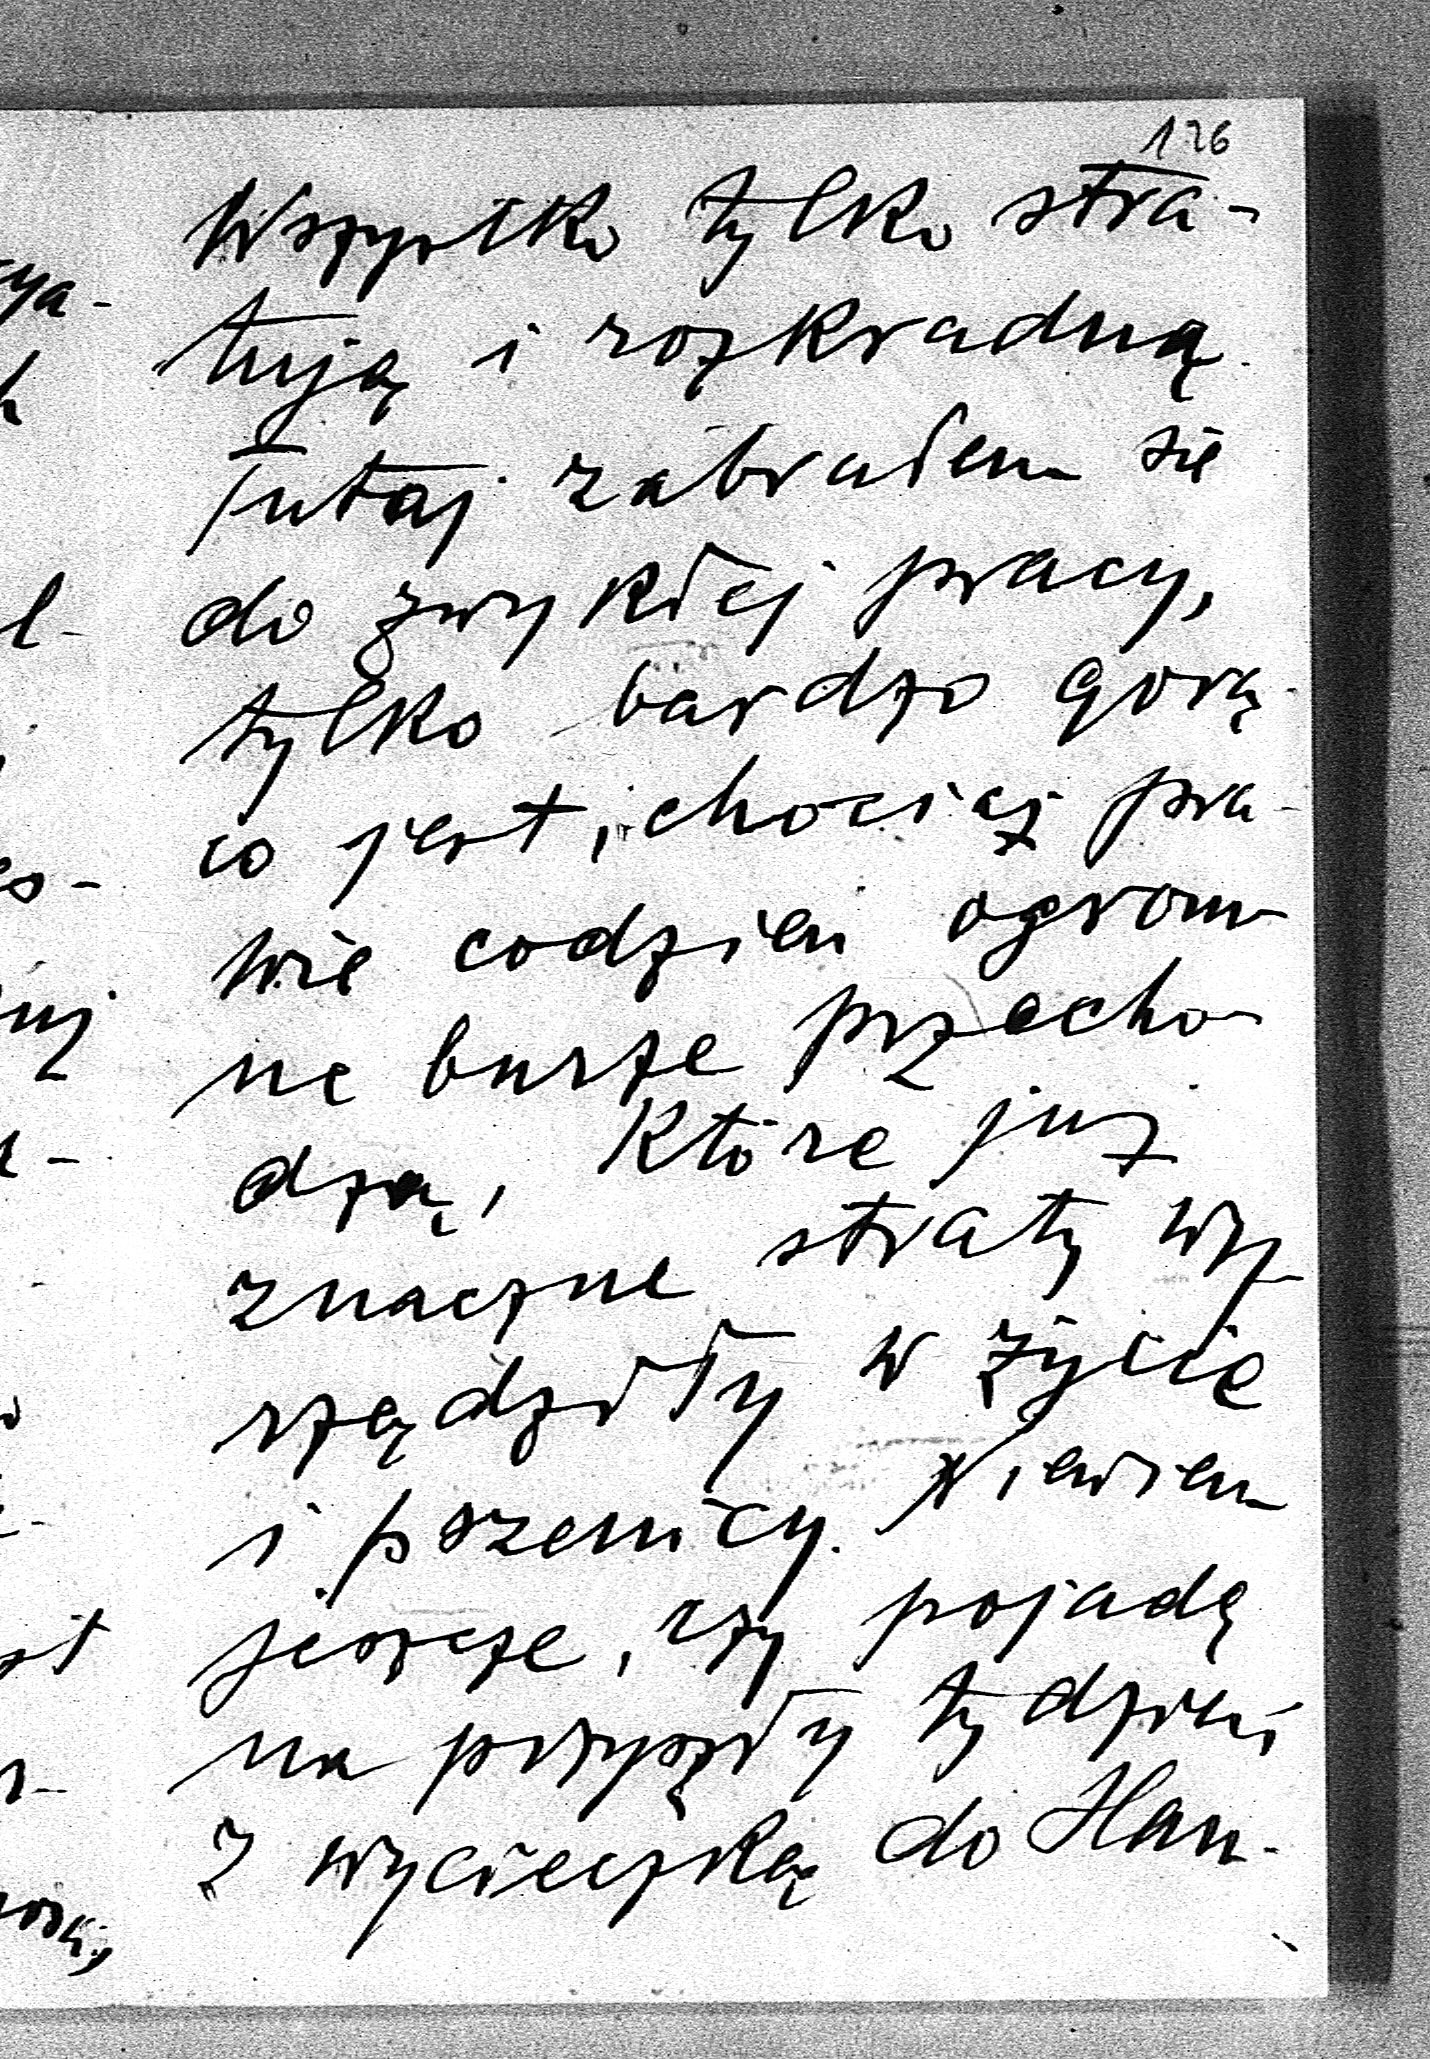 126
Wszystko tylko stra-
tują i rozkradną.
Tutaj zabrałem się
do zwykłej pracy,
tylko bardzo gorą-
co jest, chociaż pra-
wie codzień ogrom-
ne burze przecho-
dzą, które już
znaczne straty wy-
rządziły w życie
i pszenicy. Niewiem
jeszcze, czy pojadę
na przyszły tydzień
z wycieczką do Han-